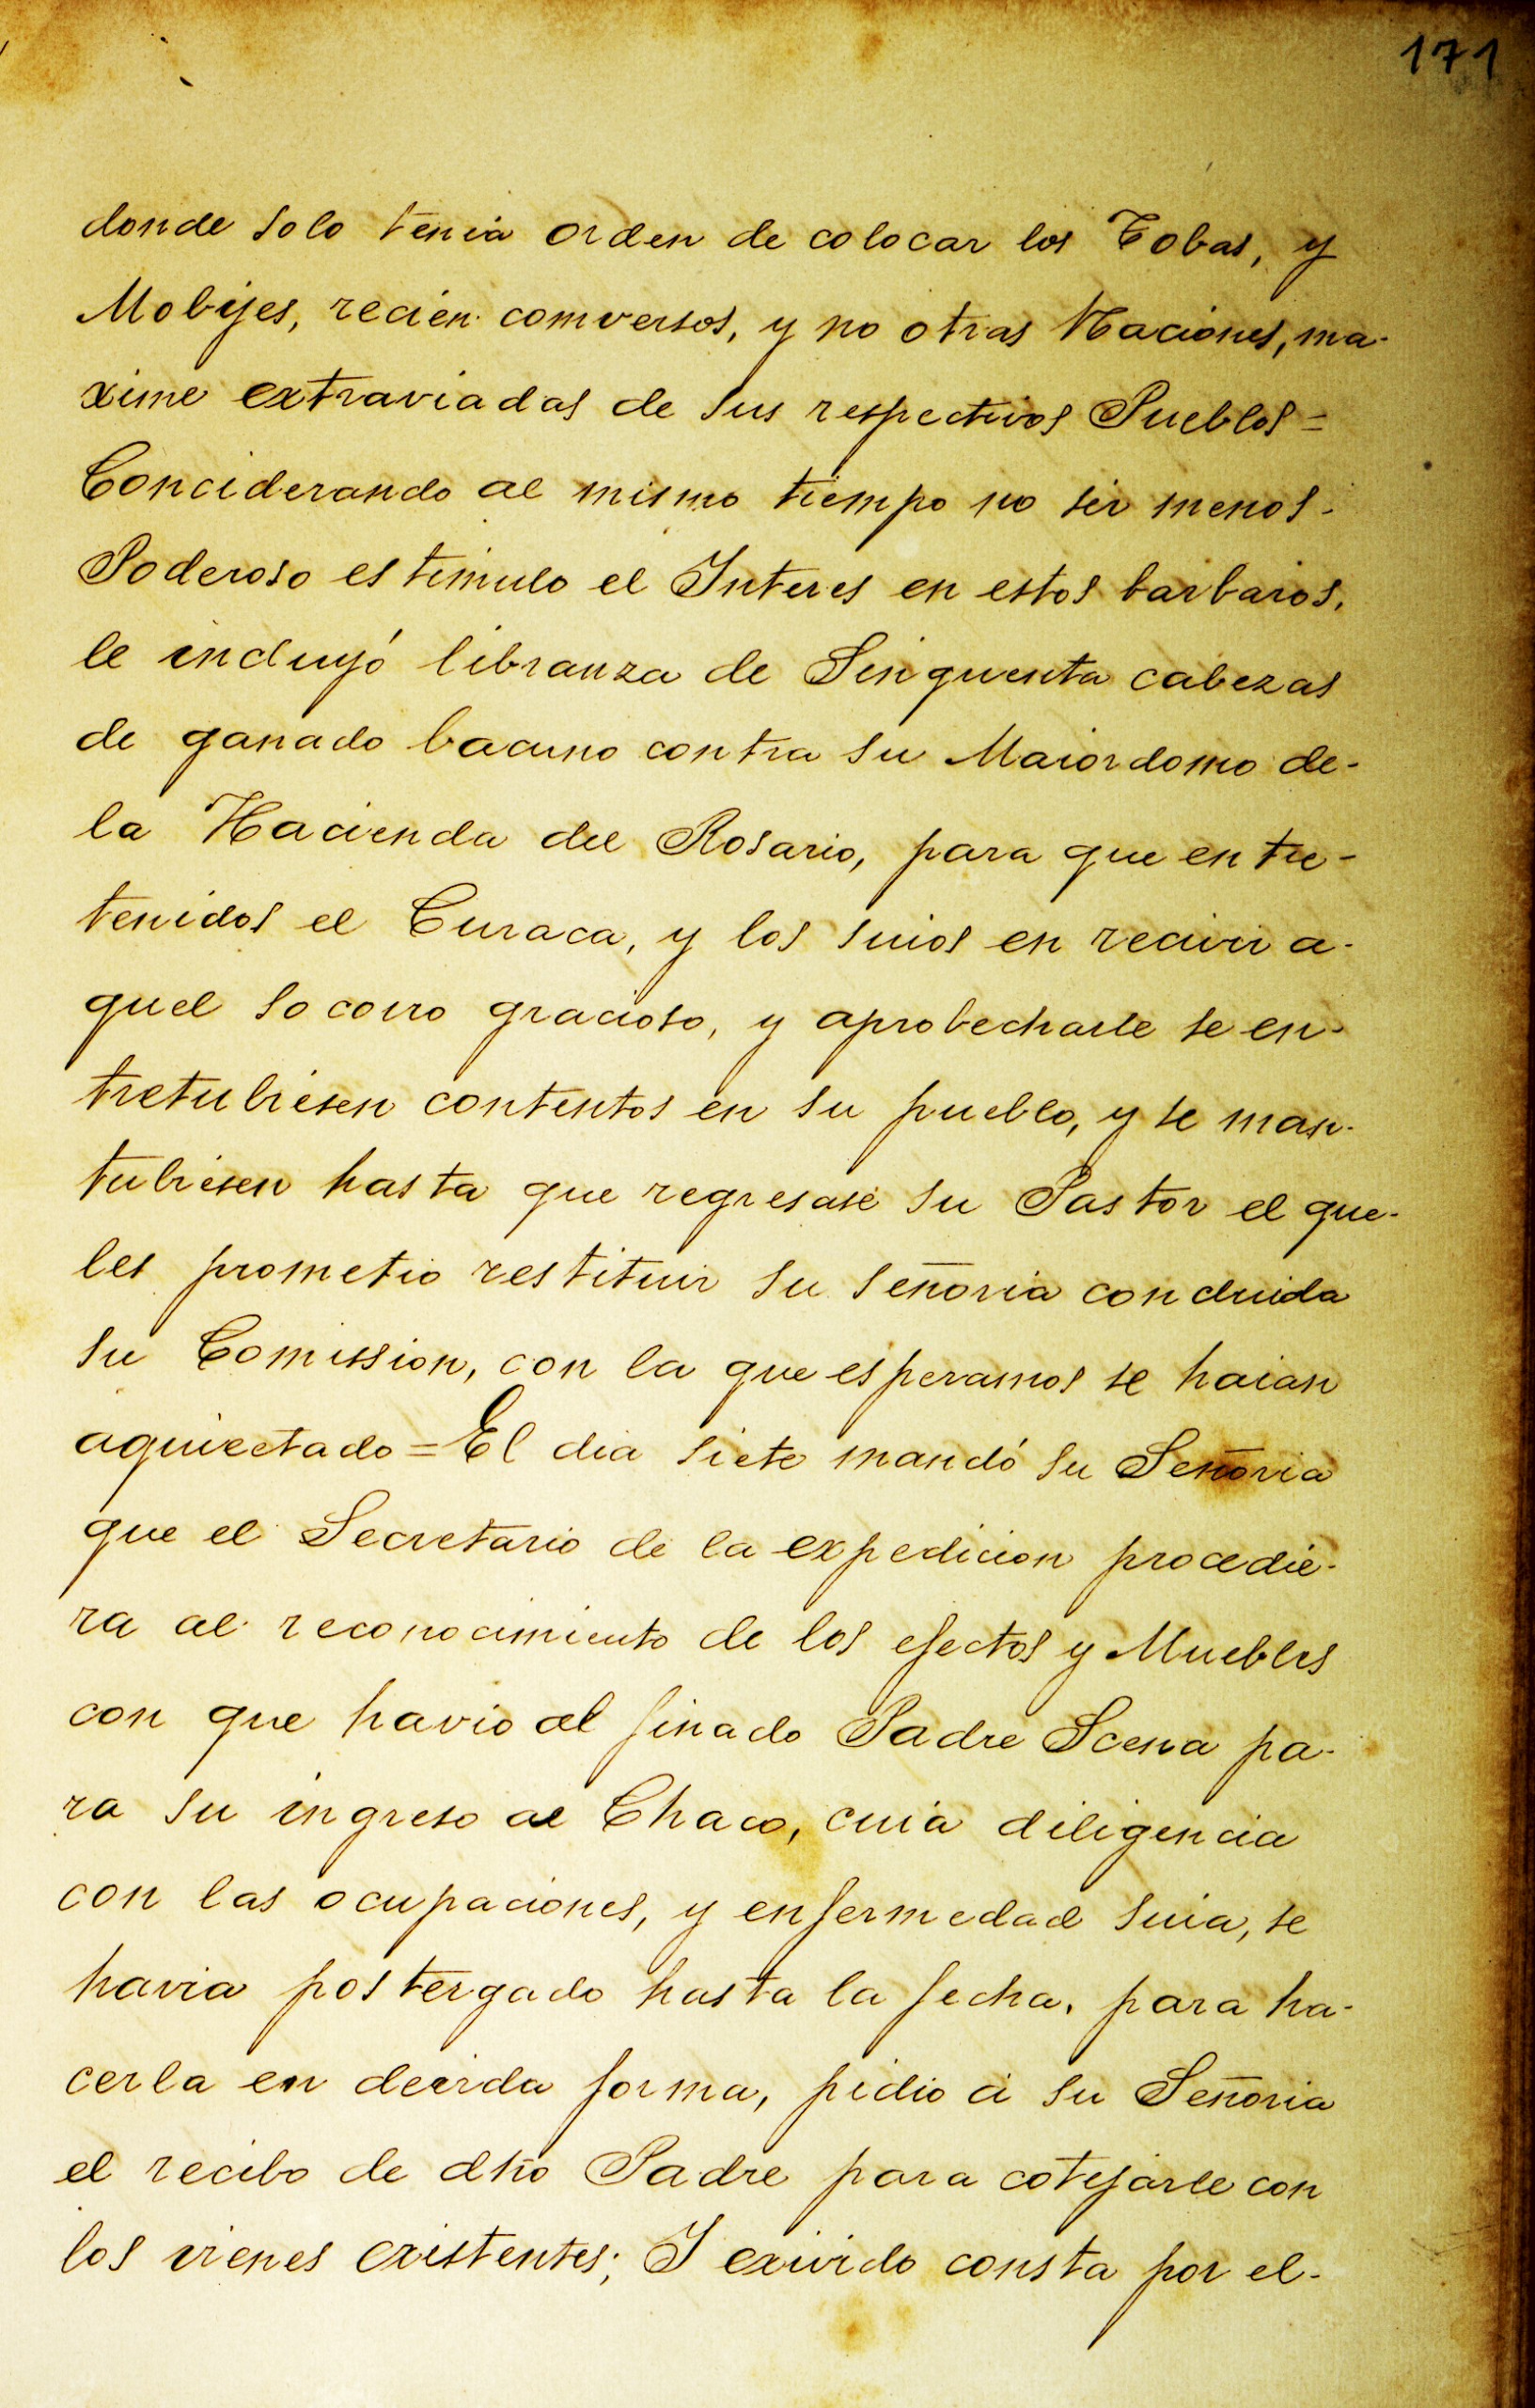 171
donde solo tenia orden de colocar los Tobas, y
Mobijes, recien comversos, y no otras Naciones, ma-
xime extraviadas de sus respectivos Pueblos =
Conciderando al mismo tiempo no ser menos
Poderoso estimulo el Interes en estos barbaros,
le incluyó libranza de Sinquenta cabezas
de ganado bacuno contra su Maiordomo de-
la Hacienda del Rosario, para que entre-
tenidos el Curaca, y los suios en recivir a-
quel socorro gracioso, y aprobecharle se en-
tretubiesen contentos en su pueblo, y se man-
tubiesen hasta que regresase su Pastor el que-
les prometio restituir su señoria concluida
su Comission, con la que esperamos se haian
aquiectado = El dia siete mandó su Señoria
que el Secretario de la expedicion procedie-
ra al reconocimiento de los efectos y Muebles
con que havio al finado Padre Scena pa-
ra su ingreso al Chaco, cuia diligencia
con las ocupaciones, y enfermedad suia, se
havia postergado hasta la fecha, para ha-
cerla en devida forma, pidio á su Señoria
el recibo de dho Padre para cotejarle con
los vienes existentes; I exivido consta por el-